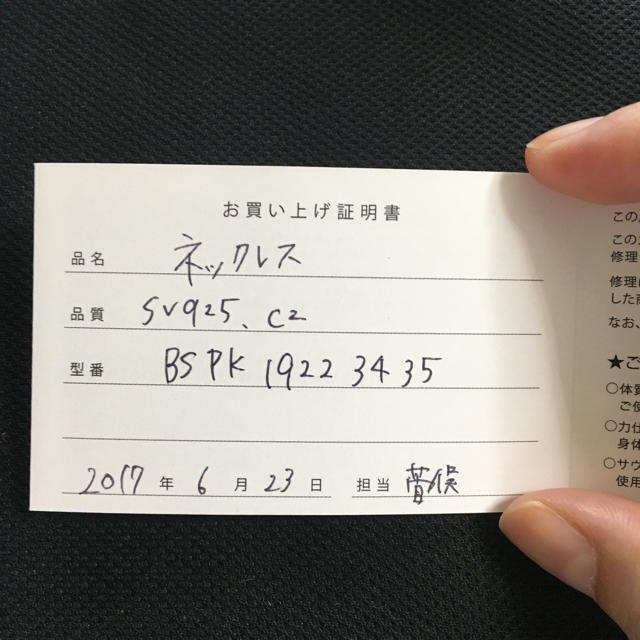 お買い上げ証明書
品名 ネックレス
品質 SV925、CZ
型番 BSPK 1922 34 35
2017 年 6 月 23 日 担当
この
この
修理
修理
した
なお、
★ご
○体質
ご使
○力仕
身体
○サウ
使用